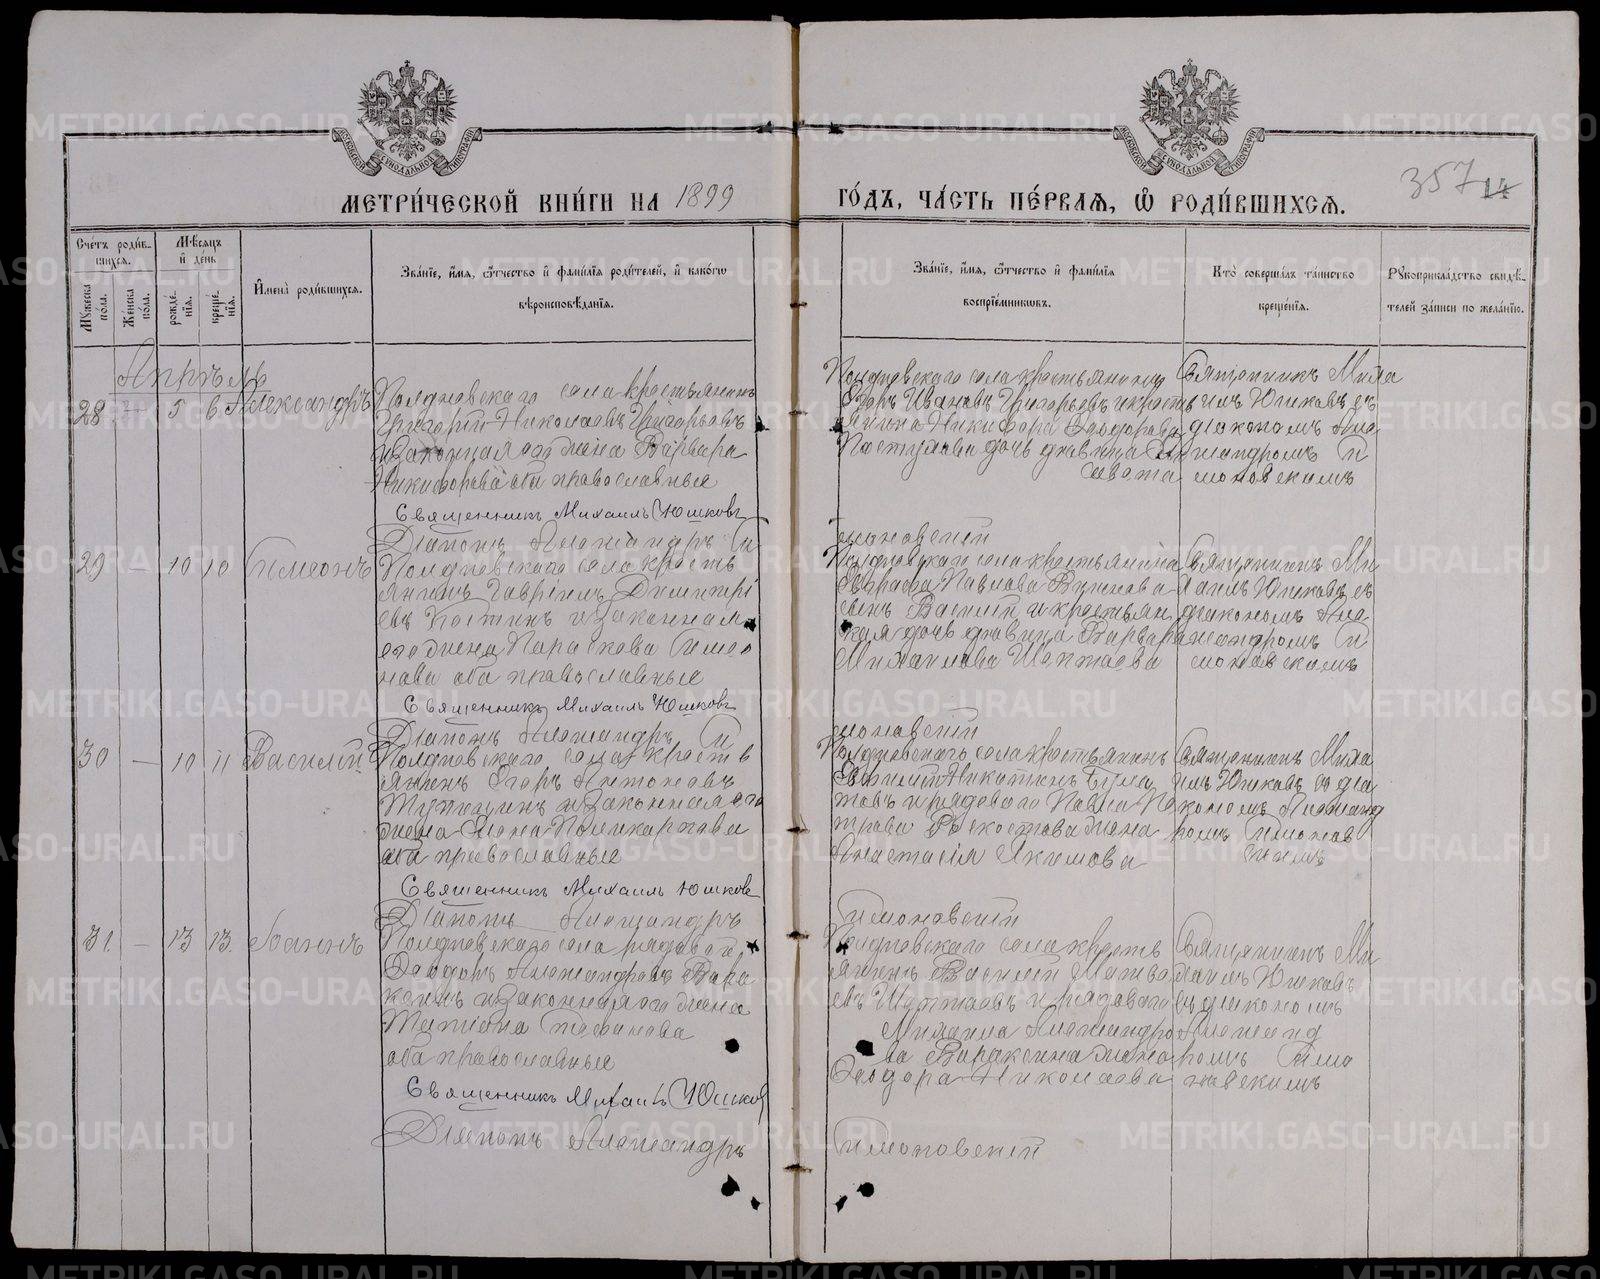 МОСКОВСКОЙ СѴНОДАЛЬНОЙ ТИПОГРАФІИ
МОСКОВСКОЙ СѴНОДАЛЬНОЙ ТИПОГРАФІИ
357
14
МЕТРИ́ЧЕСКОЙ КНИ́ГИ НА 1899
ГО́ДЪ, ЧА́СТЬ ПЕ́РВАѦ, Ѡ РОДИ́ВШИХСѦ.
Сче́тъ роди́в-
шихсѧ.
Мꙋжеска по́ла.
Же́нска по́ла.
Мѣ́сяцъ и де́нь
рожде́-
нїѧ.
креще́-
нїѧ.
Имена̀ роди́вшихсѧ.
Зва́нїе, и́мѧ, ѻ́тчество и фами́лїѧ роди́телей, и како́гѡ
вѣроисповѣ́данїѧ.
Зва́нїе, и́мѧ, ѻ́тчество и фами́лїѧ
воспрїе́мникѡвъ.
Кто̀ соверша́лъ та́инство
креще́нїѧ.
Рꙋкоприкла́дство свидѣ́-
телей за́писи по жела́нїю.
Апрѣль
28 5 6 Александръ
Полдневского села крестьянинъ
Григорий Николаевъ Григорьевъ
и законная его жена Варвара
Никифорова оба православные
Полдневского села крестьянинъ
Егоръ Ивановъ Григорьевъ и кресть
янина Никифора Феодорова
Постулова дочь девица
Священникъ Миха
илъ Юшковъ съ
діакономъ Але
ксандромъ Си
моновскимъ
Священникъ Михаилъ Юшковъ
Діаконъ Александръ Си
моновскій
29 — 10 10 Симеонъ
Полдневского села кресть
янинъ Гавріилъ Димитрі
евъ Костинъ и законная
его жена Параскева Симео
нова оба православные
Полдневскаго села крестьянина
Павлова
сынъ Василій и крестьян
ская дочь девица Варвара
Михаилова Шахтаева
Священникъ Ми
хаилъ Юшковъ съ
діакономъ Але
ксандромъ Си
моновскимъ
Священникъ Михаилъ Юшковъ
Діаконъ Александръ Си
моновскій
30 — 10 11 Василій
Полдневскаго села кресть
янинъ Егоръ Антоновъ
и законная его
жена Елена Поликарпова
оба православные
Полдневского села крестьянинъ
Василий Никитинъ
товъ и рядового Павла По
жена
Анастасія Якимова
Священникъ Миха
илъ Юшковъ съ діа
кономъ Александ
ромъ Симонов
скимъ
Священникъ Михаилъ Юшковъ
Діаконъ Александръ
Симоновскій
31. — 13 13. Іоаннъ
Полдневского села рядовой
Феодоръ Александровъ Вара
ксинъ и законная его жена
Татіана Стефанова
оба православные
Полдневского села кресть
янинъ Василій Матве
евъ Шахтаевъ и рядового
Михаила Александро
ва Вараксина жена
Феодора Николаева
Священникъ Ми
хаилъ Юшковъ
съ діакономъ
Александ
ромъ Симо
новскимъ
Священникъ Михаилъ Юшковъ
Діаконъ Александръ
Симоновскій
METRIKI.GASO-URAL.RU